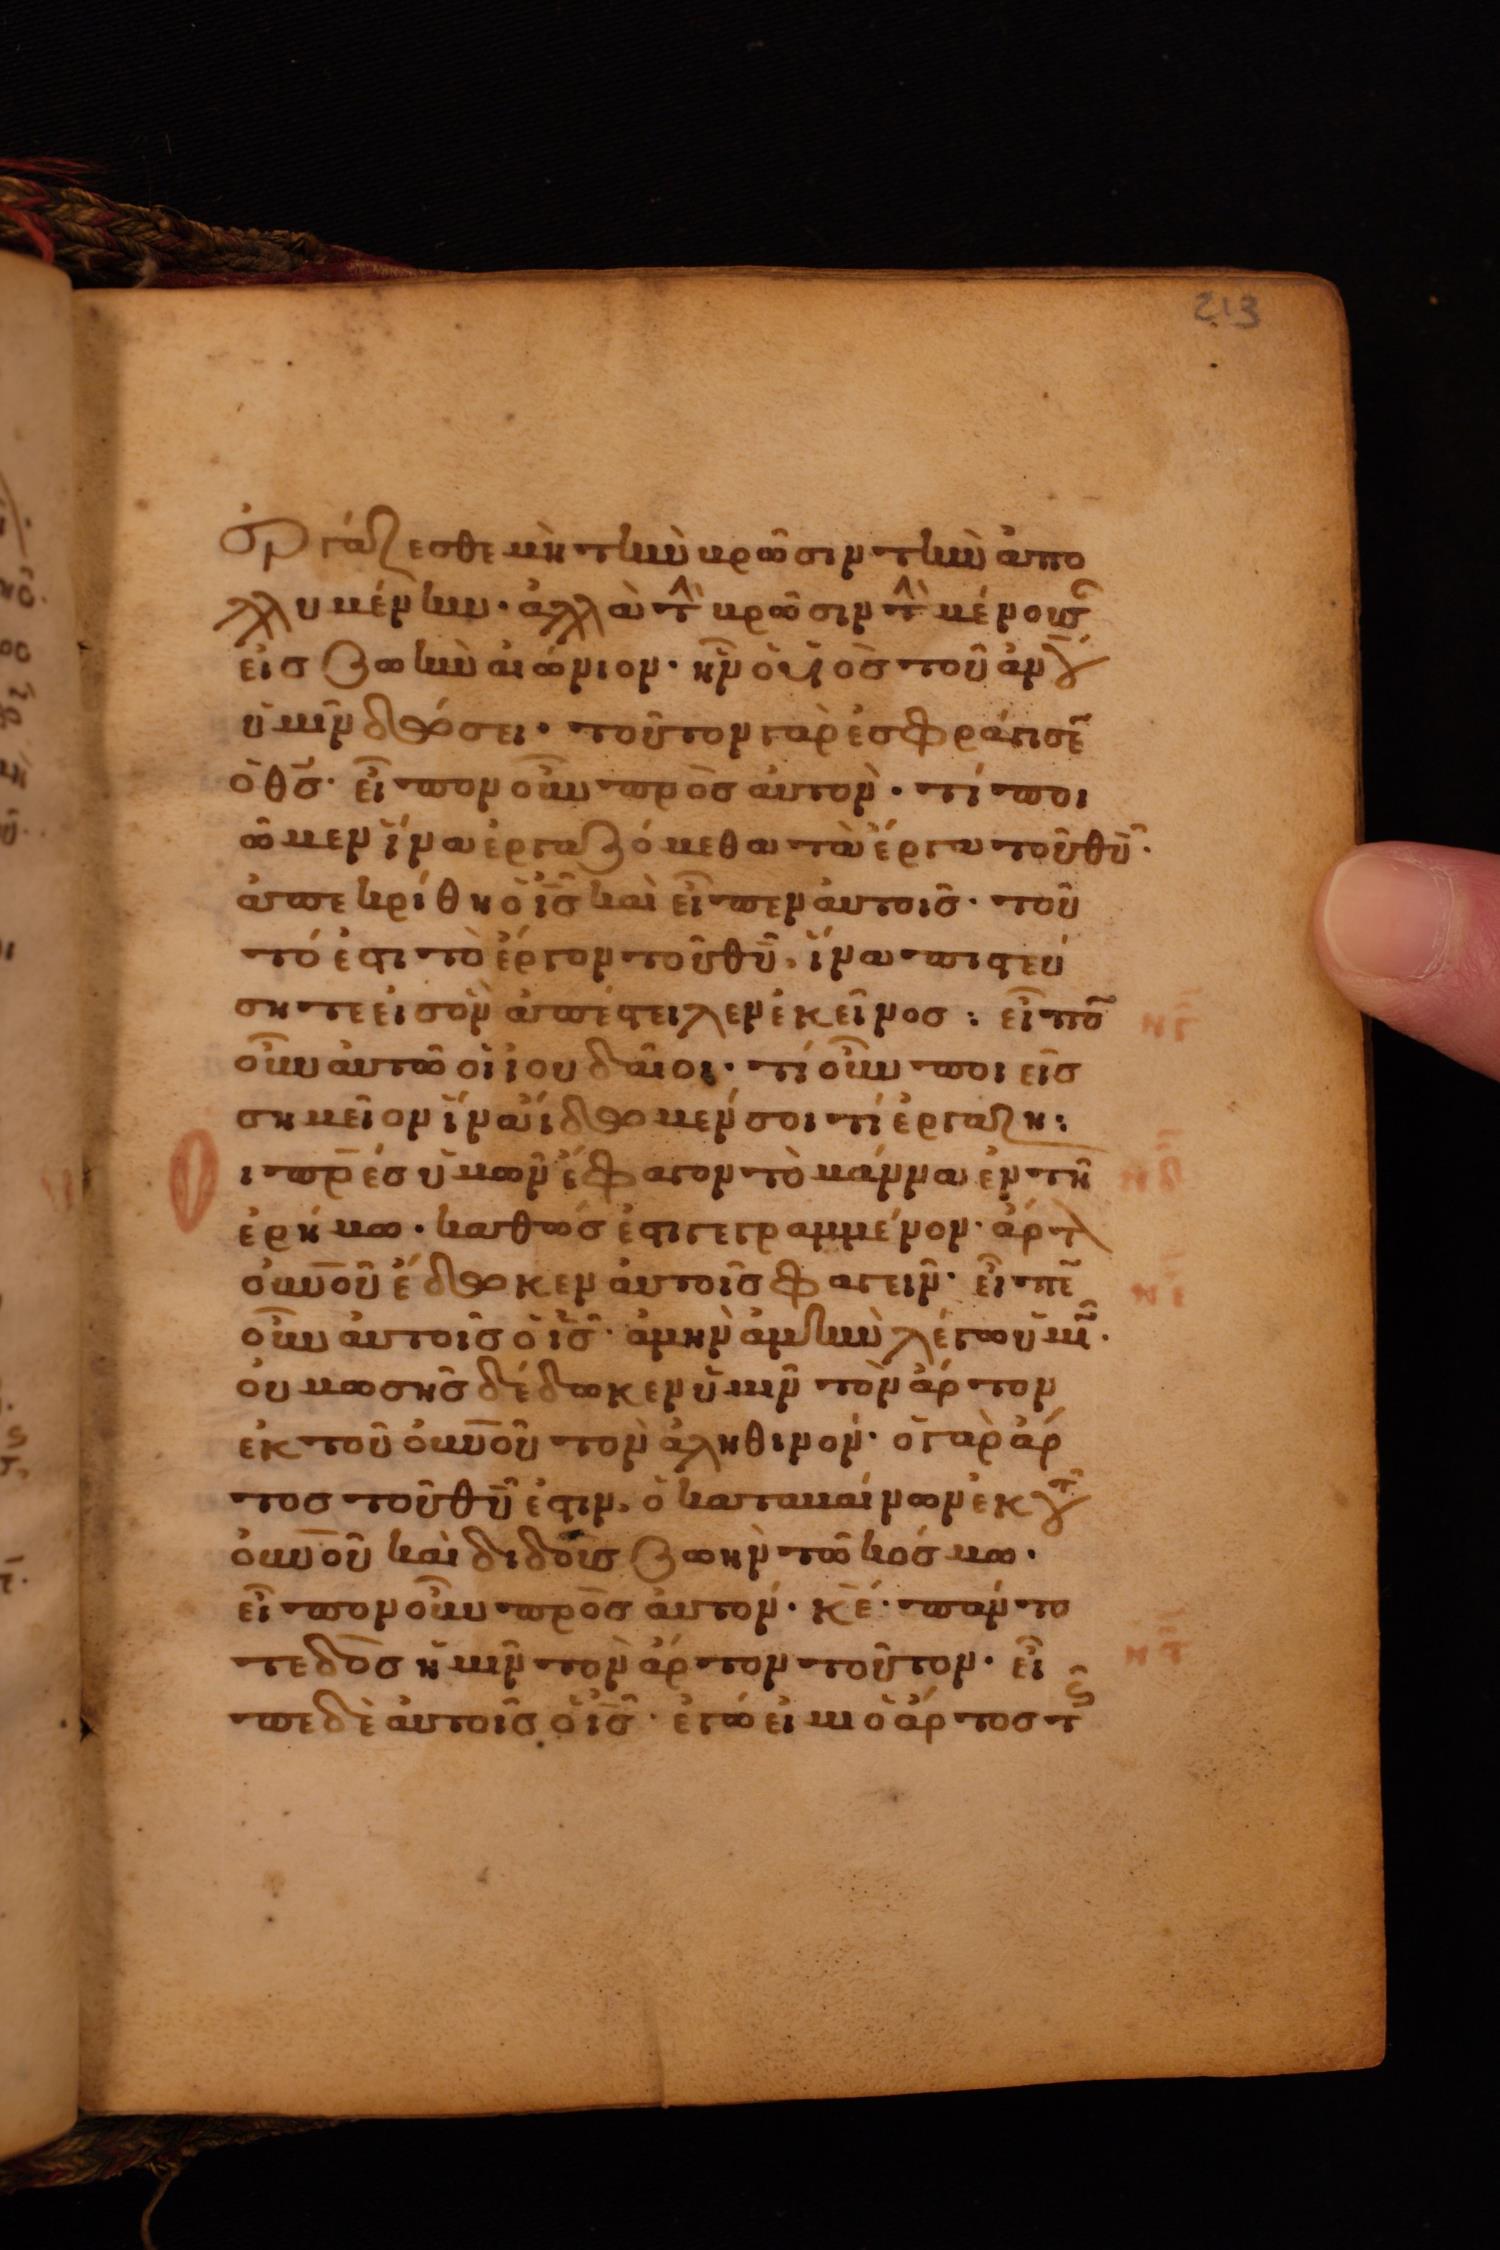 213
ἐργάζεσθε μὴ τὴν βρῶσιν τὴν ἀπο
λλυμένην· ἀλλὰ τὴν βρῶσιν τὴν μένουσ
εἰσ ζωὴν αἰώνιον· ἣν ὁ υἱὸσ τοῦ ἀνου
ὑμῖν δώσει· τοῦτον γὰρ ἐσφράγισε
ὁ θσ· εἶπον οὖν πρὸσ αὐτὸν· τί ποι
ῶμεν ἵνα ἐργαζόμεθα τὰ ἔργα τοῦ θυ·
ἀπεκρίθη ὁ ισ καὶ εἶπεν αὐτοῖσ· τοῦ
τό ἐστι τὸ ἔργον τοῦ θυ, ἵνα πιστεύ
σητε εἰσ ὃν ἀπέστειλεν ἐκεῖνοσ: εἶπο
οὖν αὐτῶ οἱ ἰουδαῖοι· τί οὖν ποιεῖσ
σημεῖον ἵνα ἴδωμέν σοι τί ἐργάζη:
ι πρεσ ὑμῶν ἔφαγον τὸ μάννα ἐν τῆ
ἐρήμω· καθώσ ἐστι γεγραμμένον· ἄρτ
οὐνοῦ ἔδωκεν αὐτοῖσ φαγεῖν· εἶπε
οὖν αὐτοῖσ ὁ ισ· ἀμὴν ἀμὴν λέγω ὑμ·
οὐ μωσῆσ δέδωκεν ὑμῖν τὸν ἄρτον
ἐκ τοῦ οὐνοῦ τὸν ἀληθινόν· ὁ γὰρ ἄρ
τοσ τοῦ θυ ἐστιν, ὁ καταβαίνων ἐκ του
οὐνοῦ καὶ διδοὺσ ζωὴν τῶ κόσμω·
εἶπον οὖν πρὸσ αὐτόν· κε· πάντο
τε δὸσ ἡμῖν τὸν ἄρτον τοῦτον· εἶ
πε δὲ αὐτοῖσ ὁ ισ· ἐγώ εἰμι ὁ ἄρτοσ τῆσ